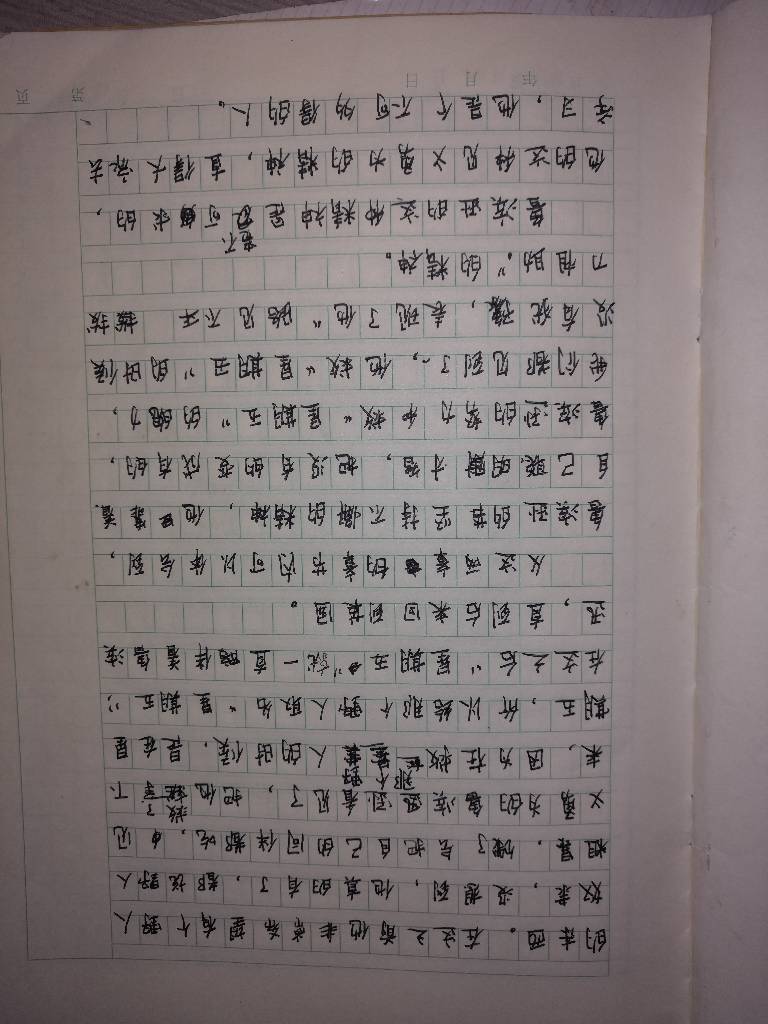 年 月 日
第 页
的东西。在这之前他非常希望有个野人
奴隶,没想到,他真的有了,都说野人
粗暴,饿了会把自己的同伴都吃,中见
义勇为的鲁滨逊看见了,把他救了下
来,因为在救那个野人的时候,是在星
期五,所以给那个野人取名“星期五”
在这之后“星期五”就一直陪伴着鲁滨
逊,直到后来回到英国。
从这两章的章节内可以体会到,
鲁滨孙的坚持不懈的精神,他靠着
自己聪明才智,把没有的变成有的,
鲁滨孙的努力和救“星期五”的魄力,
我们都见到了,他救“星期五”的时候
没有犹豫,表现了他“路见不平 拔
刀相助。”的精神。
鲁滨逊的这种精神是毫不可求的,
他的这种见义勇为的精神,直得大家去
学习,他是个不可多得的人。